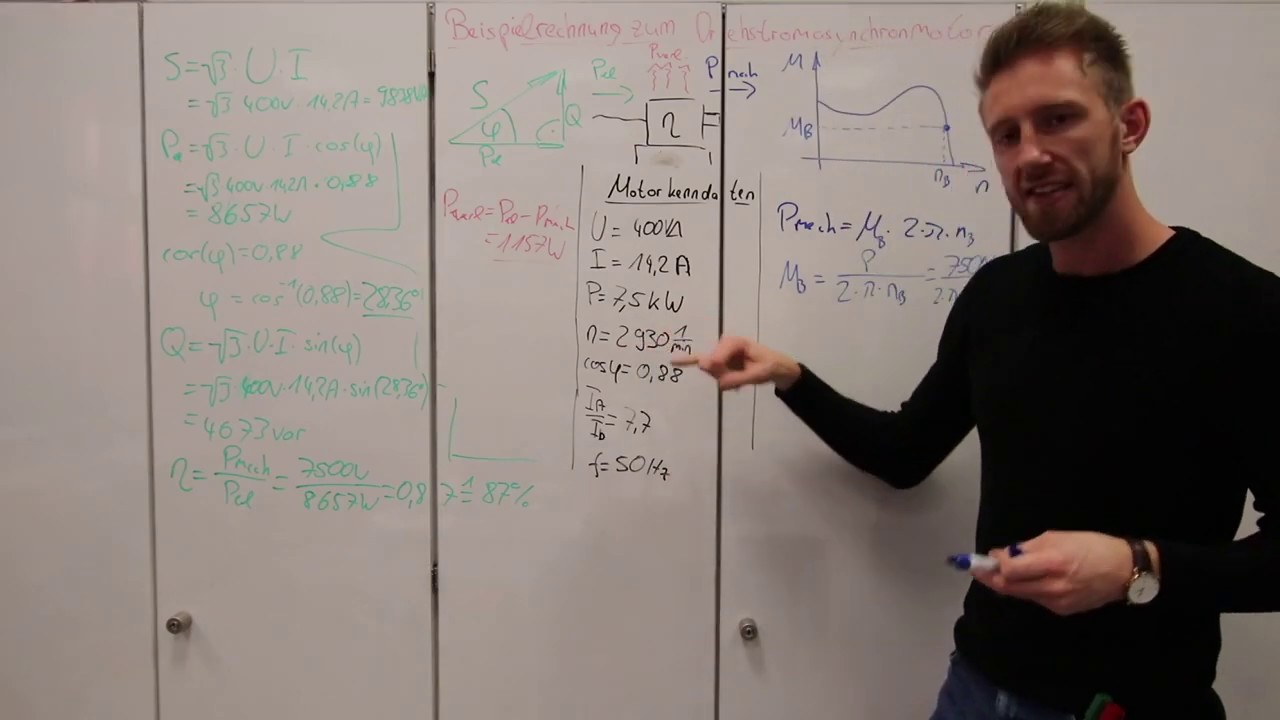 Beispielrechnung zum Drehstromasynchronmotor
S = √3 · U · I
= √3 · 400V · 14,2A = 9838VA
Pel = √3 · U · I · cos(φ)
= √3 · 400V · 14,2A · 0,88
= 8657W
cos(φ) = 0,88
φ = cos⁻¹(0,88) = 28,36°
Q = √3 · U · I · sin(φ)
= √3 · 400V · 14,2A · sin(28,36°)
= 4673var
η = Pmech / Pel = 7500W / 8657W = 0,87 ≙ 87%
S
φ
Q
Pel
Pel
Pverl
Pmech
η
Pverl = Pel - Pmech
= 1157W
Motorkenndaten
U = 400V
I = 14,2A
P = 7,5kW
n = 2930 1/min
cosφ = 0,88
IA / IB = 7,7
f = 50Hz
M
MB
nB
n
Pmech = MB · 2·π·nB
MB = P / 2·π·nB = 750 / 2·π